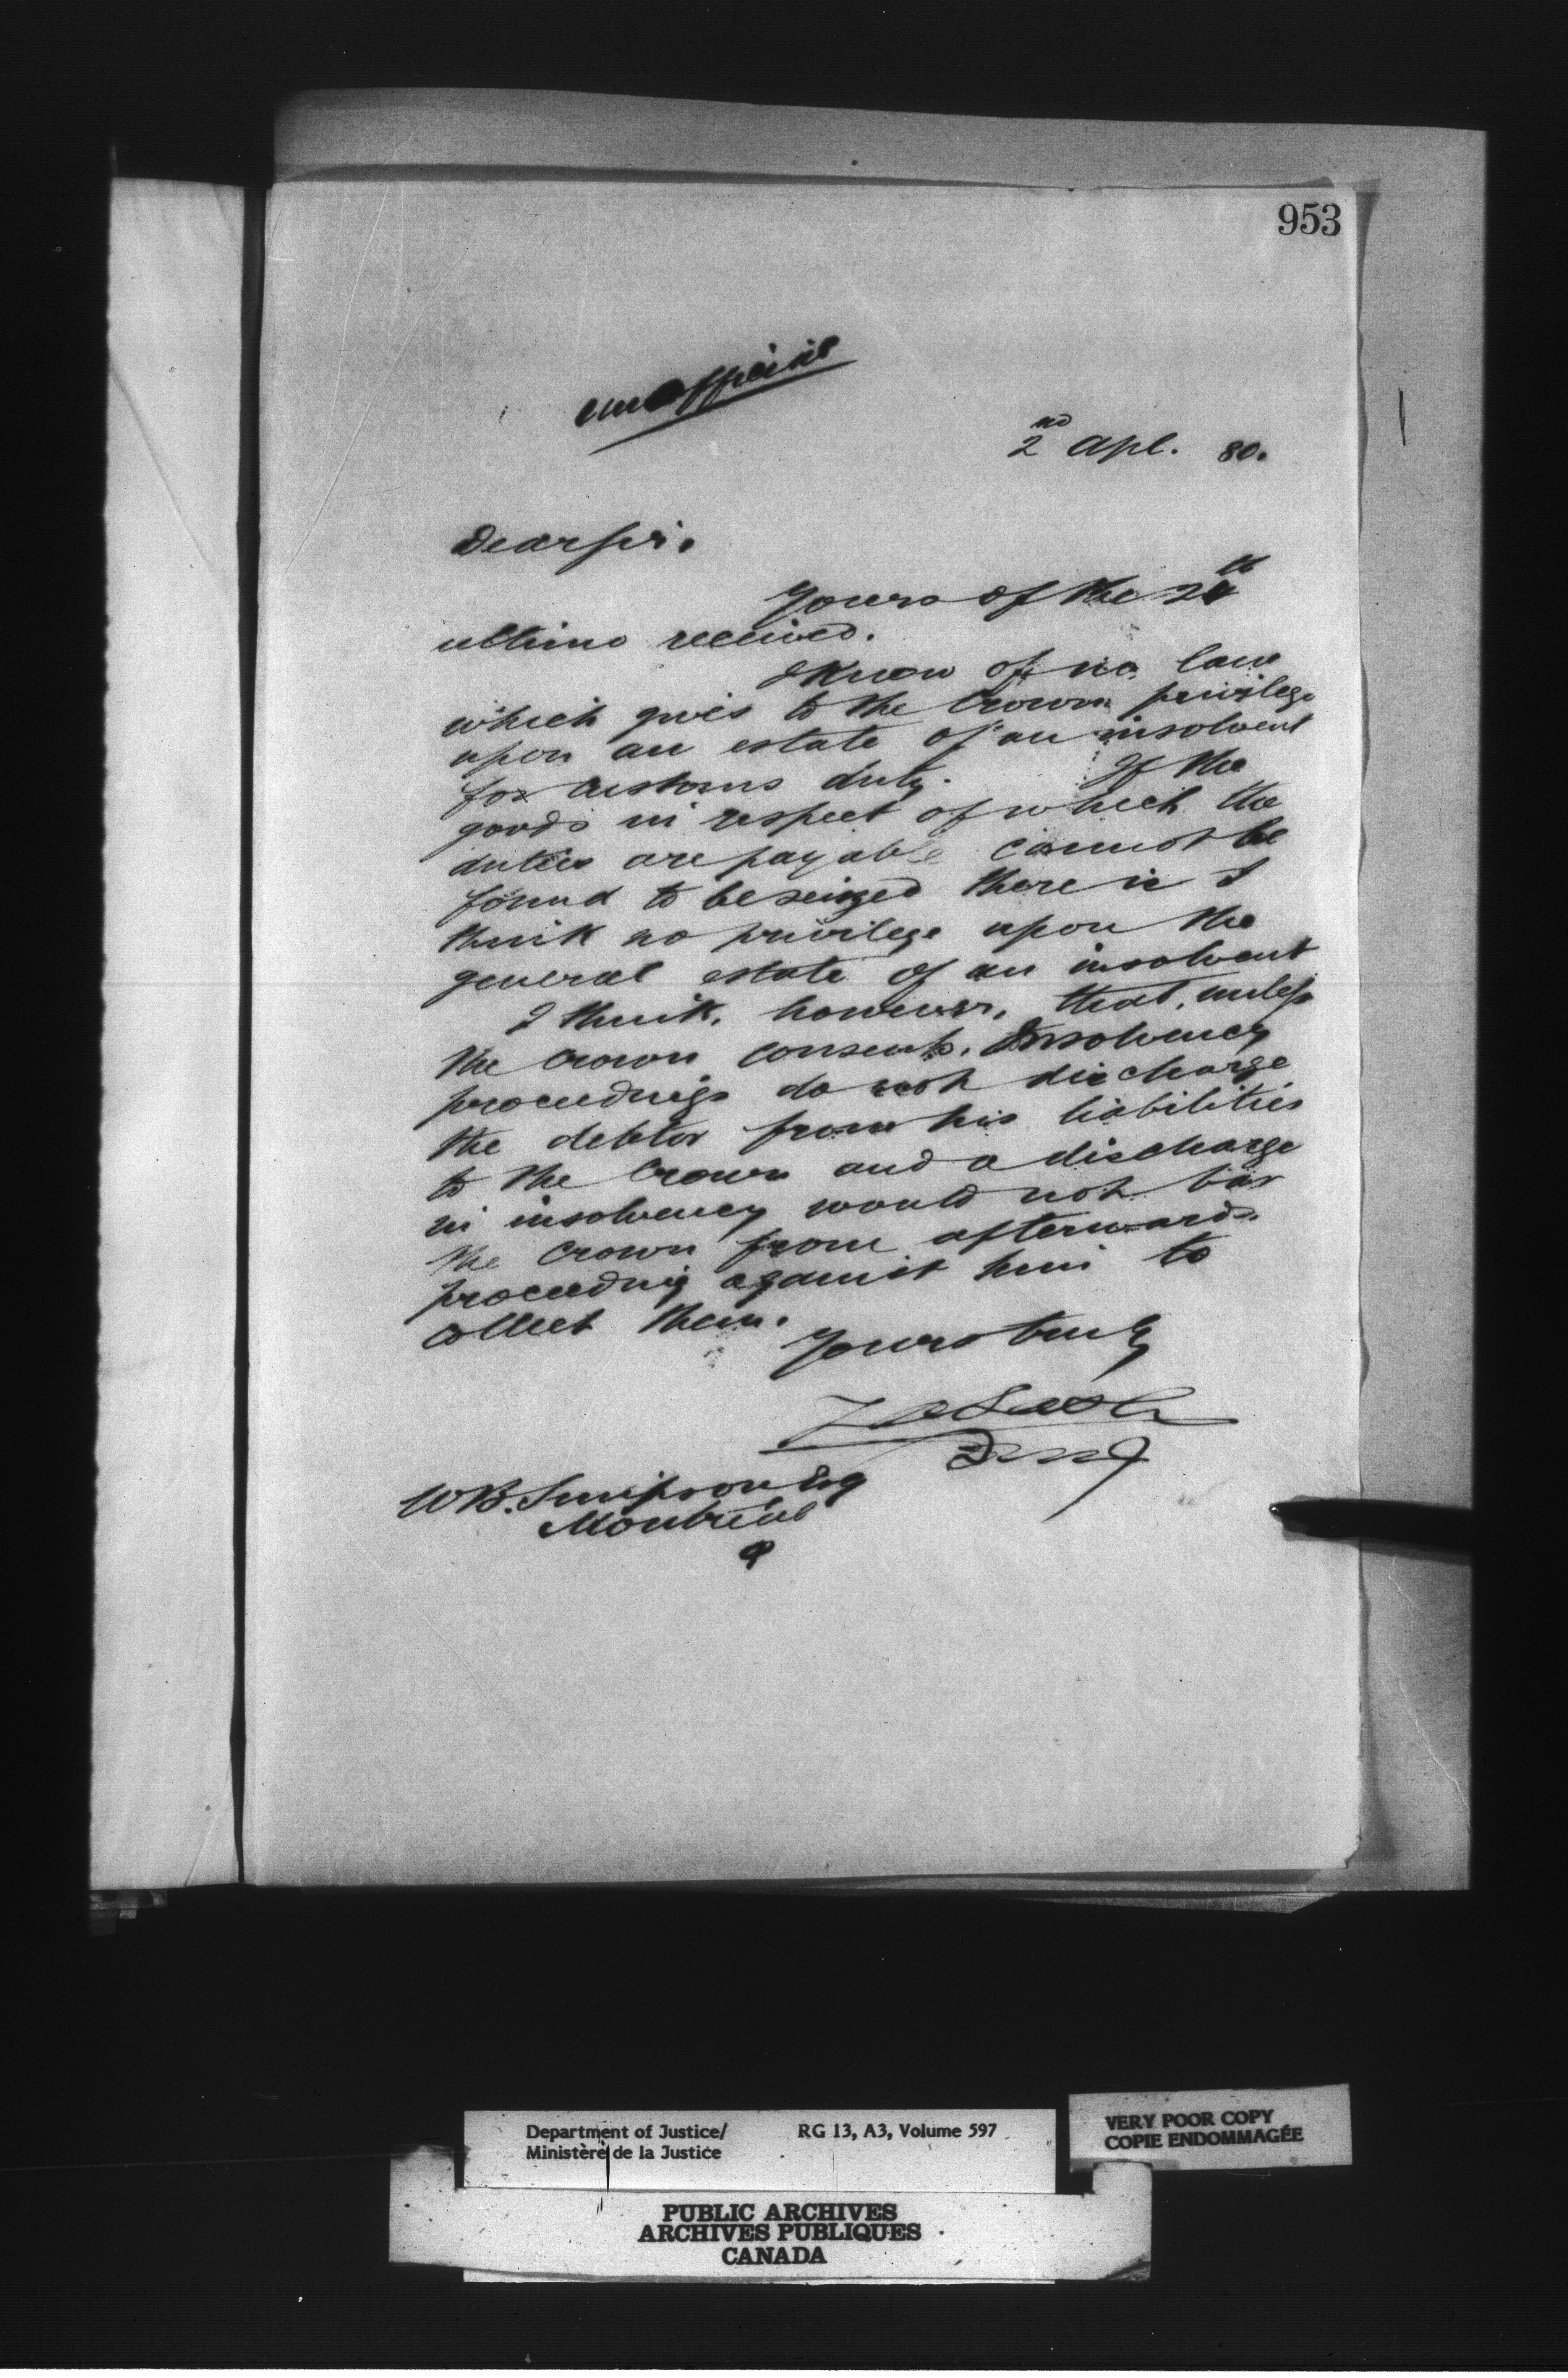 953
unofficial
2nd Apl. 80.
Dear Sir.
Yours of the
ultimo received.
I know of no law
which gives to the Crown privilege
upon an estate of an insolvent
for customs duty. If the
goods in respect of which the
duties are payable cannot be
found to be seized there is I
think no privilege upon the
general estate of an insolvent
I think, however, that, unless
the Crown consents, Insolvency
proceedings do not discharge
the debtor from his liabilities
to the Crown and a discharge
in insolvency would not bar
the Crown from afterwards
proceeding against him to
collect them.
Yours truly
W B. Simpson Esq
Montreal
Department of Justice/ RG 13, A3, Volume 597
Ministère de la Justice
VERY POOR COPY
COPIE ENDOMMAGÉE
PUBLIC ARCHIVES
ARCHIVES PUBLIQUES
CANADA